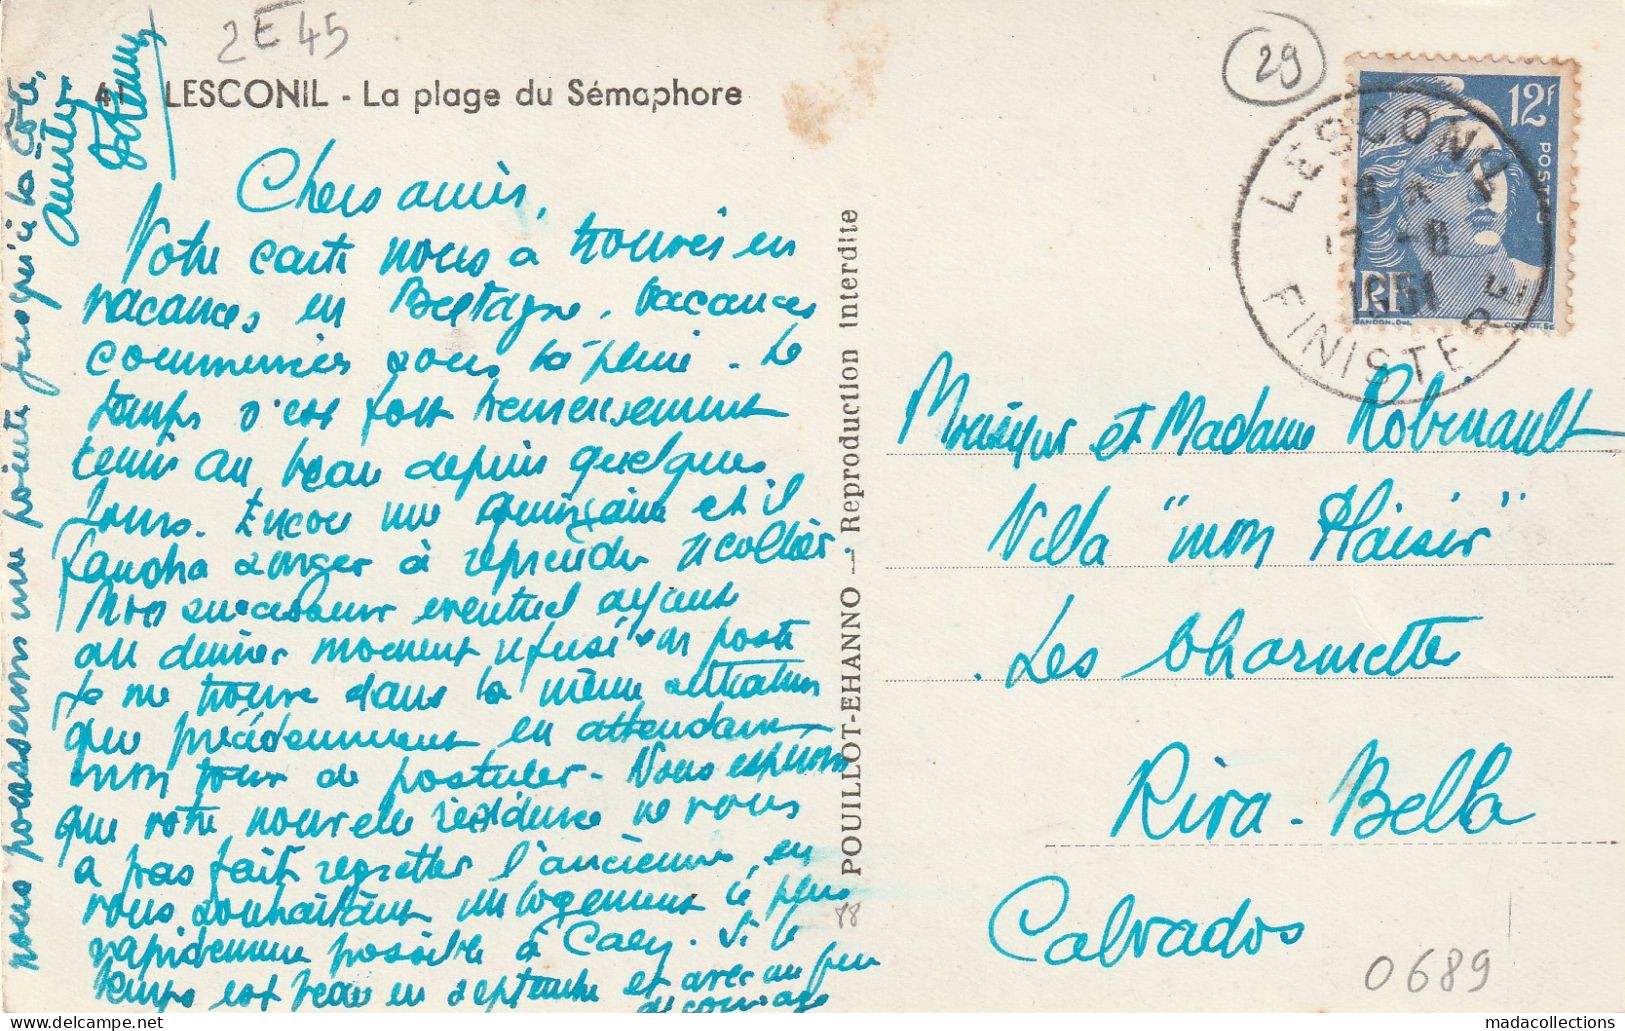 2E45
41 LESCONIL - La plage du Sémaphore
Chers amis,
Votre carte nous a trouvés en
vacances en Bretagne. Vacances
commencées sous la pluie. Le
temps s'est fort heureusement
tenu au beau depuis quelques
jours. Encore une quinzaine et il
faudra songer à reprendre le collier.
Mon successeur éventuel ayant
au dernier moment refusé un poste
je me trouve dans la même situation
que précédemment en attendant
mon tour de postuler. Nous espérons
que votre nouvelle résidence ne vous
a pas fait regretter l'ancienne, en
vous souhaitant un logement le plus
rapidement possible à Caen. Si le
temps est beau en septembre et avec un peu
de courage
nous pousserons une pointe jusqu'à la Côte,
Amitiés
POUILLOT-EHANNO — Reproduction interdite
88
29
12F
POSTES
RF
GANDON.Del.
LESCONIL
18 H
17 -8
1951
FINISTERE
Monsieur et Madame Robinault
Villa "mon Plaisir"
Les Charmettes
Riva-Bella
Calvados
0689
madacollections